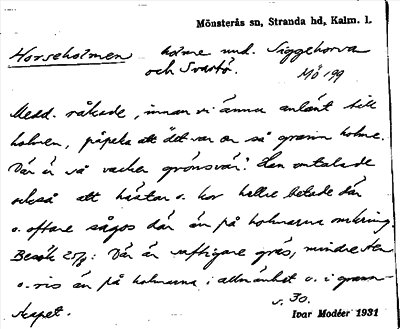 Mönsterås sn, Stranda hd, Kalm. l.
Horseholmen holme und. Siggehorva
och Svartö.
Mö 199
Medd. råkade, innan vi ännu anlänt till
holmen, påpeka att "det var en så grann holme.
Där är så vacker grönsvär." Han omtalade
också att hästar o. kor hellre betade där
o. oftare sågos där än på holmarna omkring.
Besök 25/8: Där är saftigare gräs, mindre sten
o. ris än på holmarna i allmänhet o. i grann-
skapet.
s. 30.
Ivar Modéer 1931